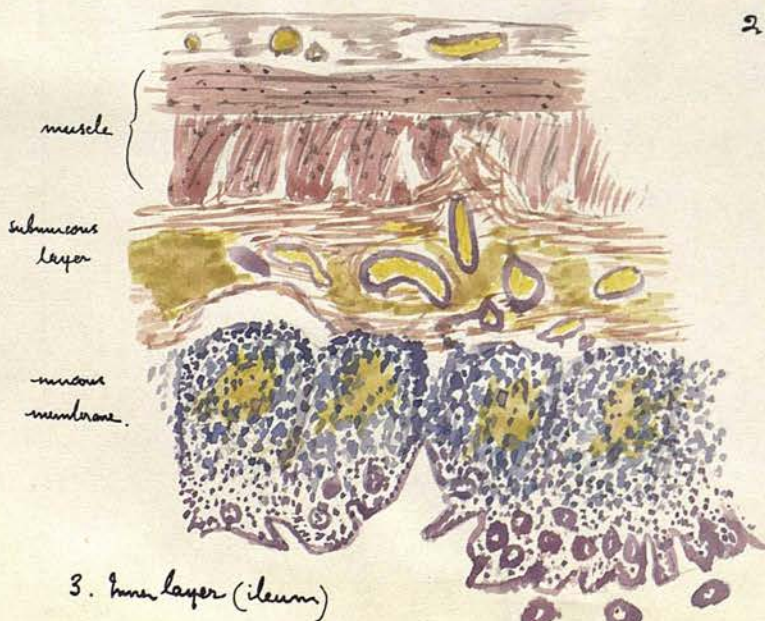 2
muscle
submucous
layer
mucous
membrane.
3. Inner layer (ileum)